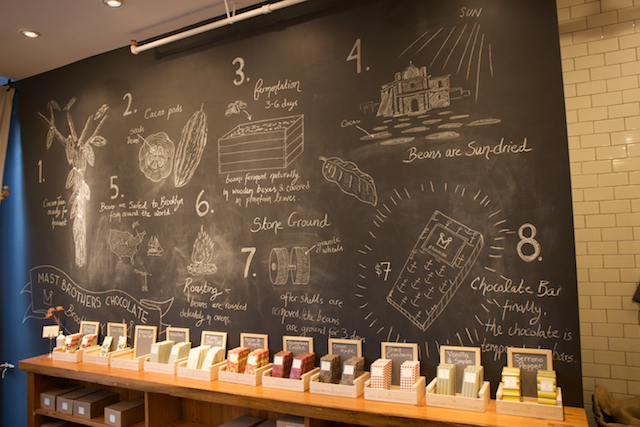 1.
Cacao Tree
ready for
harvest
2.
Cacao pods
seeds
3.
fermentation
3-6 days
beans ferment naturally
in wooden boxes & covered
in plantain leaves.
4.
SUN
Cacao
Beans are Sun-dried
5.
Beans are Sailed to Brooklyn
from around the world
6.
Roasting
beans are roasted
delicately in oven.
7.
Stone Ground
granite
wheels
after shells are
removed, the beans
are ground for 3 days
$7
M
8.
Chocolate Bar
finally,
the chocolate is
MAST BROTHERS CHOCOLATE
Cranberry
Vanilla &
Serrano
Pepper